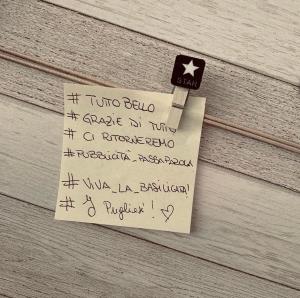 STAR
# TUTTO BELLO
# GRAZIE DI TUTTO
# CI RITORNEREMO
#PUBBLICITÀ_PASSAPAROLA
# VIVA_LA_BASILICATA!
# I Pugliesi! ♡